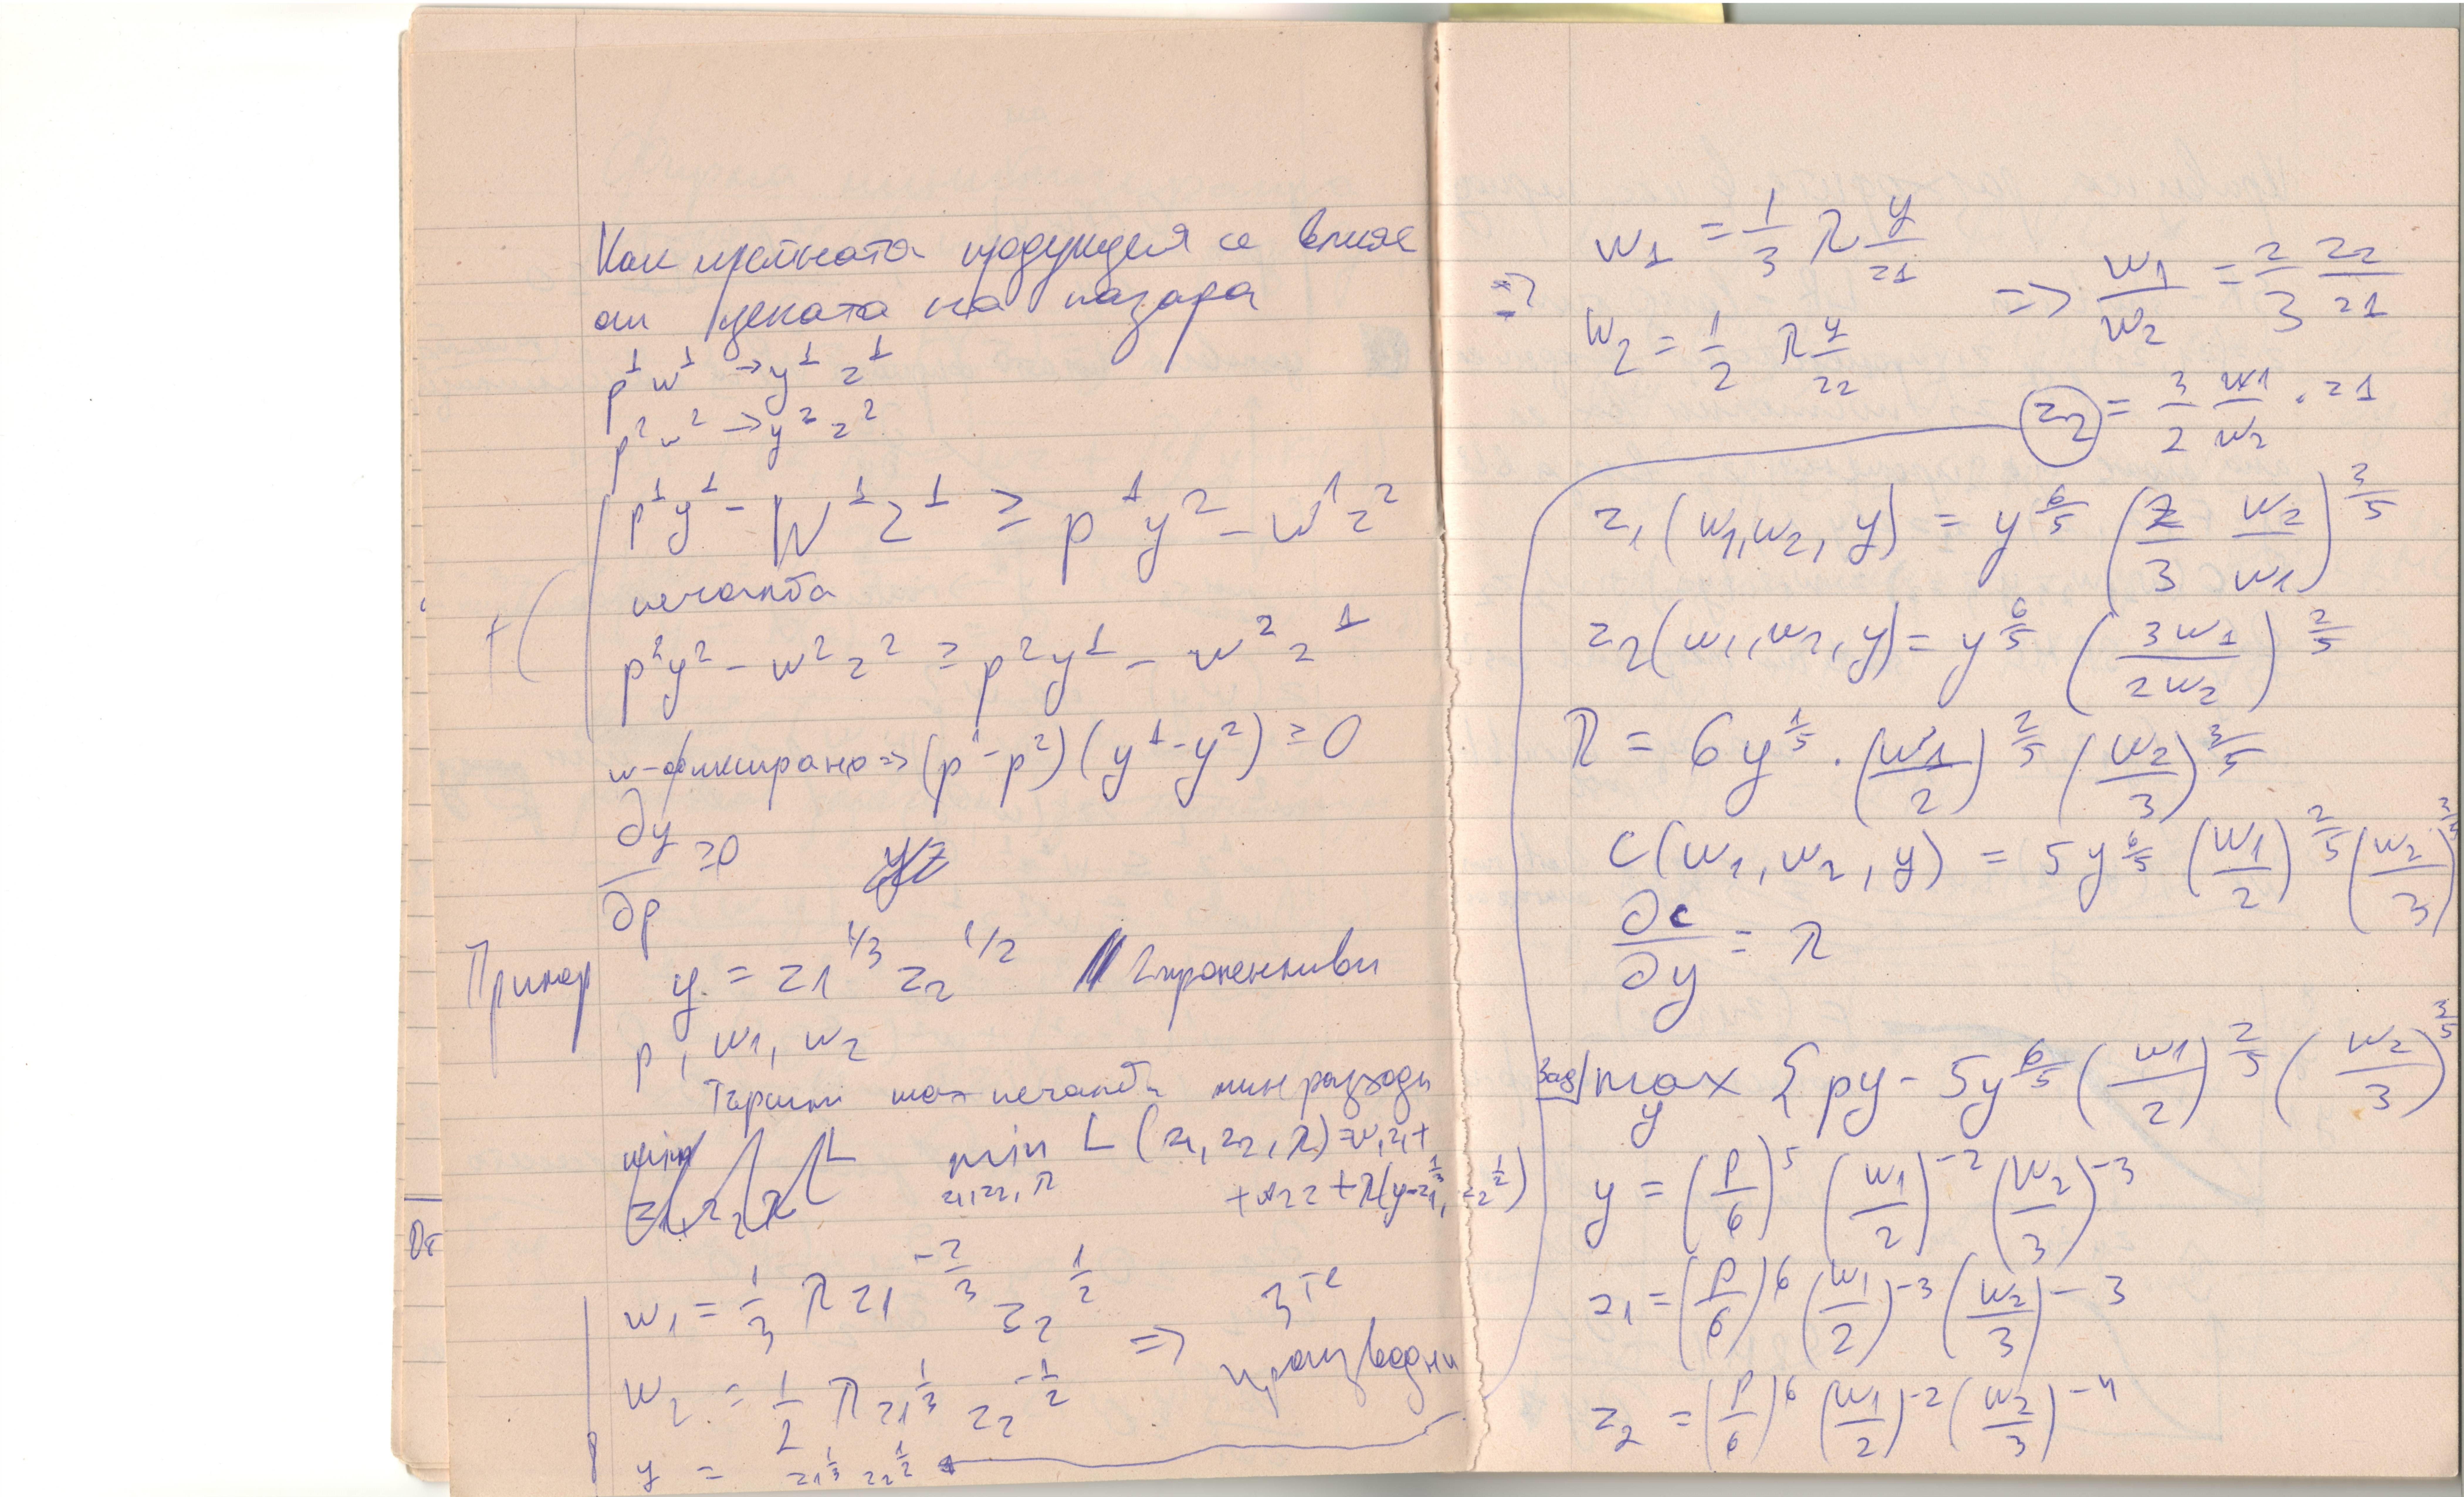 Как нейната продукция се влияе
от цената на пазара
p¹ w¹ → y¹ z¹
p² w² → y² z²
p¹y¹ - W¹z¹ ≥ p¹y² - w¹z²
печалба
+ ( p²y² - w²z² ≥ p²y¹ - w²z¹
w-фиксирано => (p¹-p²)(y¹-y²) ≥ 0
∂y/∂p ≥ 0
Пример y = z1^1/3 z2^1/2 // 2 променливи
p, w1, w2
Търсим max печалба мин разходи
min z1,z2,λ L(z1, z2, λ) = w1z1 +
+ w2z2 + λ(y - z1^1/3, z2^1/2)
w1 = 1/3 λ z1^-2/3 z2^1/2 => 3те
w2 = 1/2 λ z1^1/3 z2^-1/2 производни
y = z1^1/3 z2^1/2
От
=> w1 = 1/3 λ y/z1 => w1/w2 = 2/3 z2/z1
w2 = 1/2 λ y/z2
z2 = 3/2 w1/w2 . z1
z1(w1, w2, y) = y^6/5 (2/3 w2/w1)^3/5
z2(w1, w2, y) = y^6/5 (3w1/2w2)^2/5
λ = 6y^1/5 . (w1/2)^2/5 (w2/3)^3/5
C(w1, w2, y) = 5y^6/5 (w1/2)^2/5 (w2/3)^3/5
∂c/∂y = λ
Зад/ max y { py - 5y^6/5 (w1/2)^2/5 (w2/3)^3/5
y = (p/6)^5 (w1/2)^-2 (w2/3)^-3
z1 = (p/6)^6 (w1/2)^-3 (w2/3)^-3
z2 = (p/6)^6 (w1/2)^-2 (w2/3)^-4